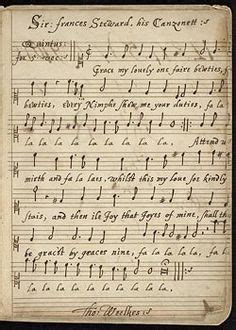 Sir: frances Steward, his Canzonett:
Quintus
for 5 voc:
Grace my lovely one faire bewties,
bewties, every Nimphe, show me your duties, fa la
la la la la la la la la. Attend w
mirth and fa la laes. whilst this my love soe kindly
stais, and then ile Joy that Joyes of mine, shall th
be grac't by graces nine, fa la la la, fa la
la la la la la la la la.
Tho: Weelkes: